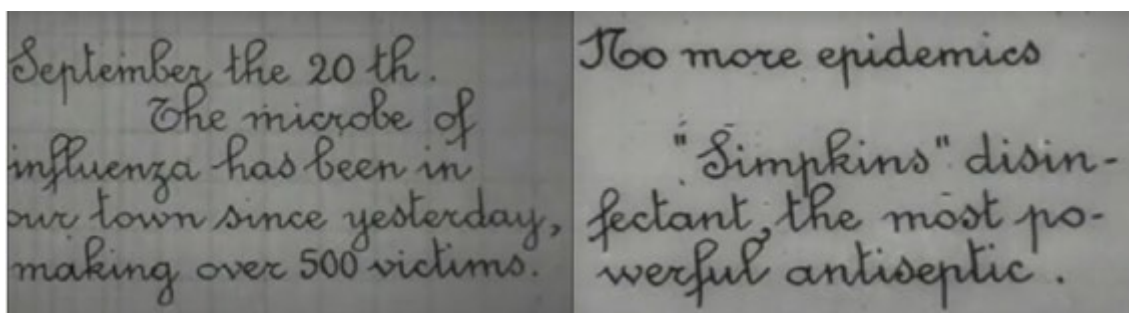 September the 20 th.
The microbe of
influenza has been in
our town since yesterday,
making over 500 victims.
No more epidemics
"Simpkins" disin-
fectant, the most po-
werful antiseptic.